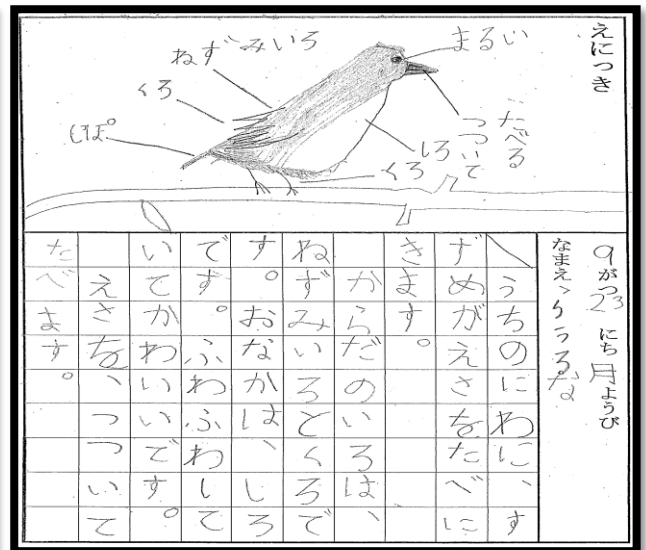 えにつき
まるい
つついて
たべる
ねずみいろ
くろ
しぽ
しろ
くろ
9がつ23にち月ようび
なまえ
うちのにわに、す
ずめがえさをたべに
きます。
からだのいろは、
ねずみいろとくろで
す。おなかは、しろ
です。ふわふわして
いてかわいいです。
えさを、つついて
たべます。